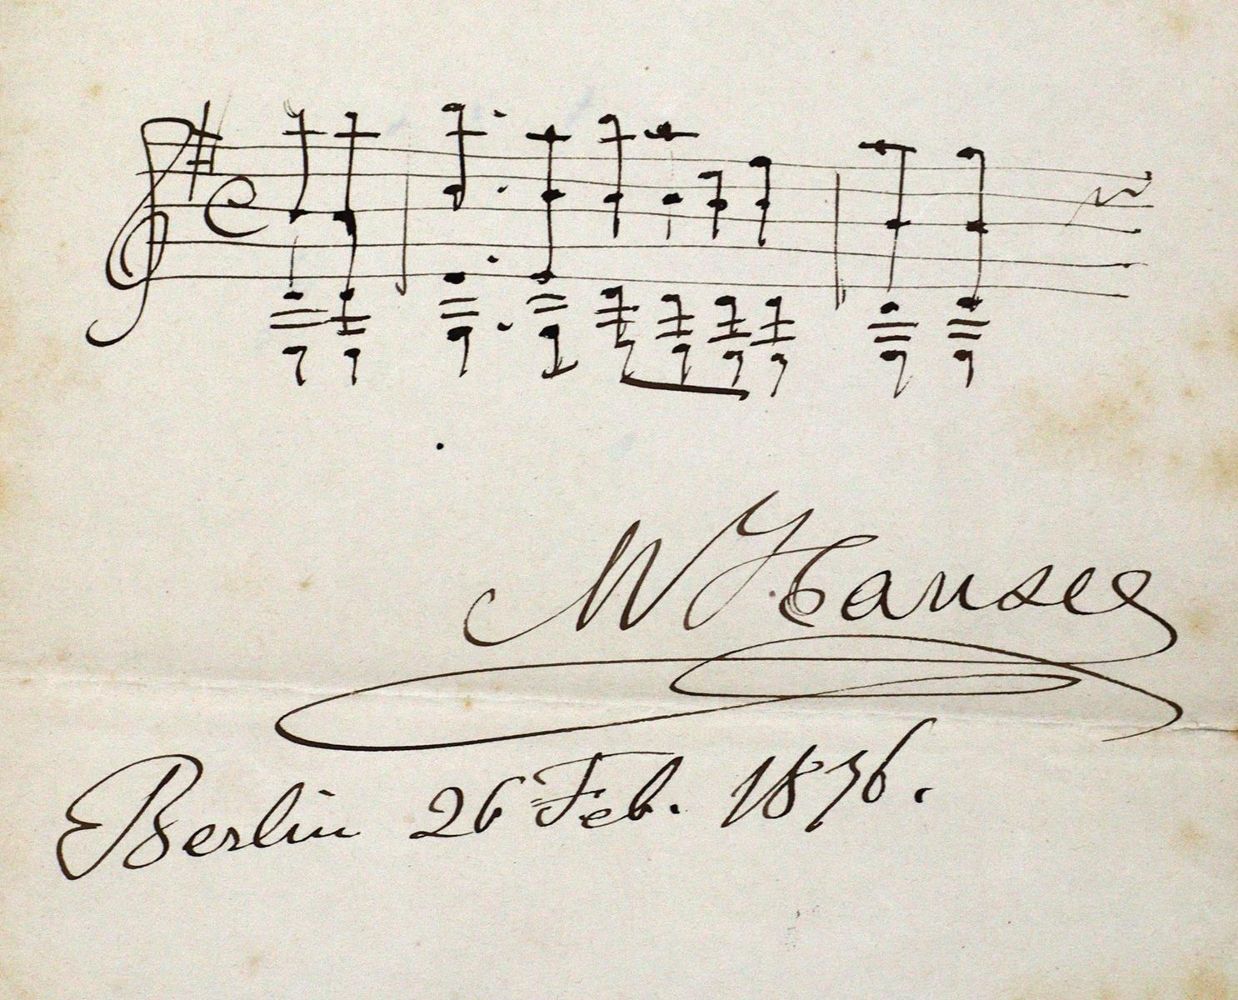 M Hauser
Berlin 26 Feb. 1876.